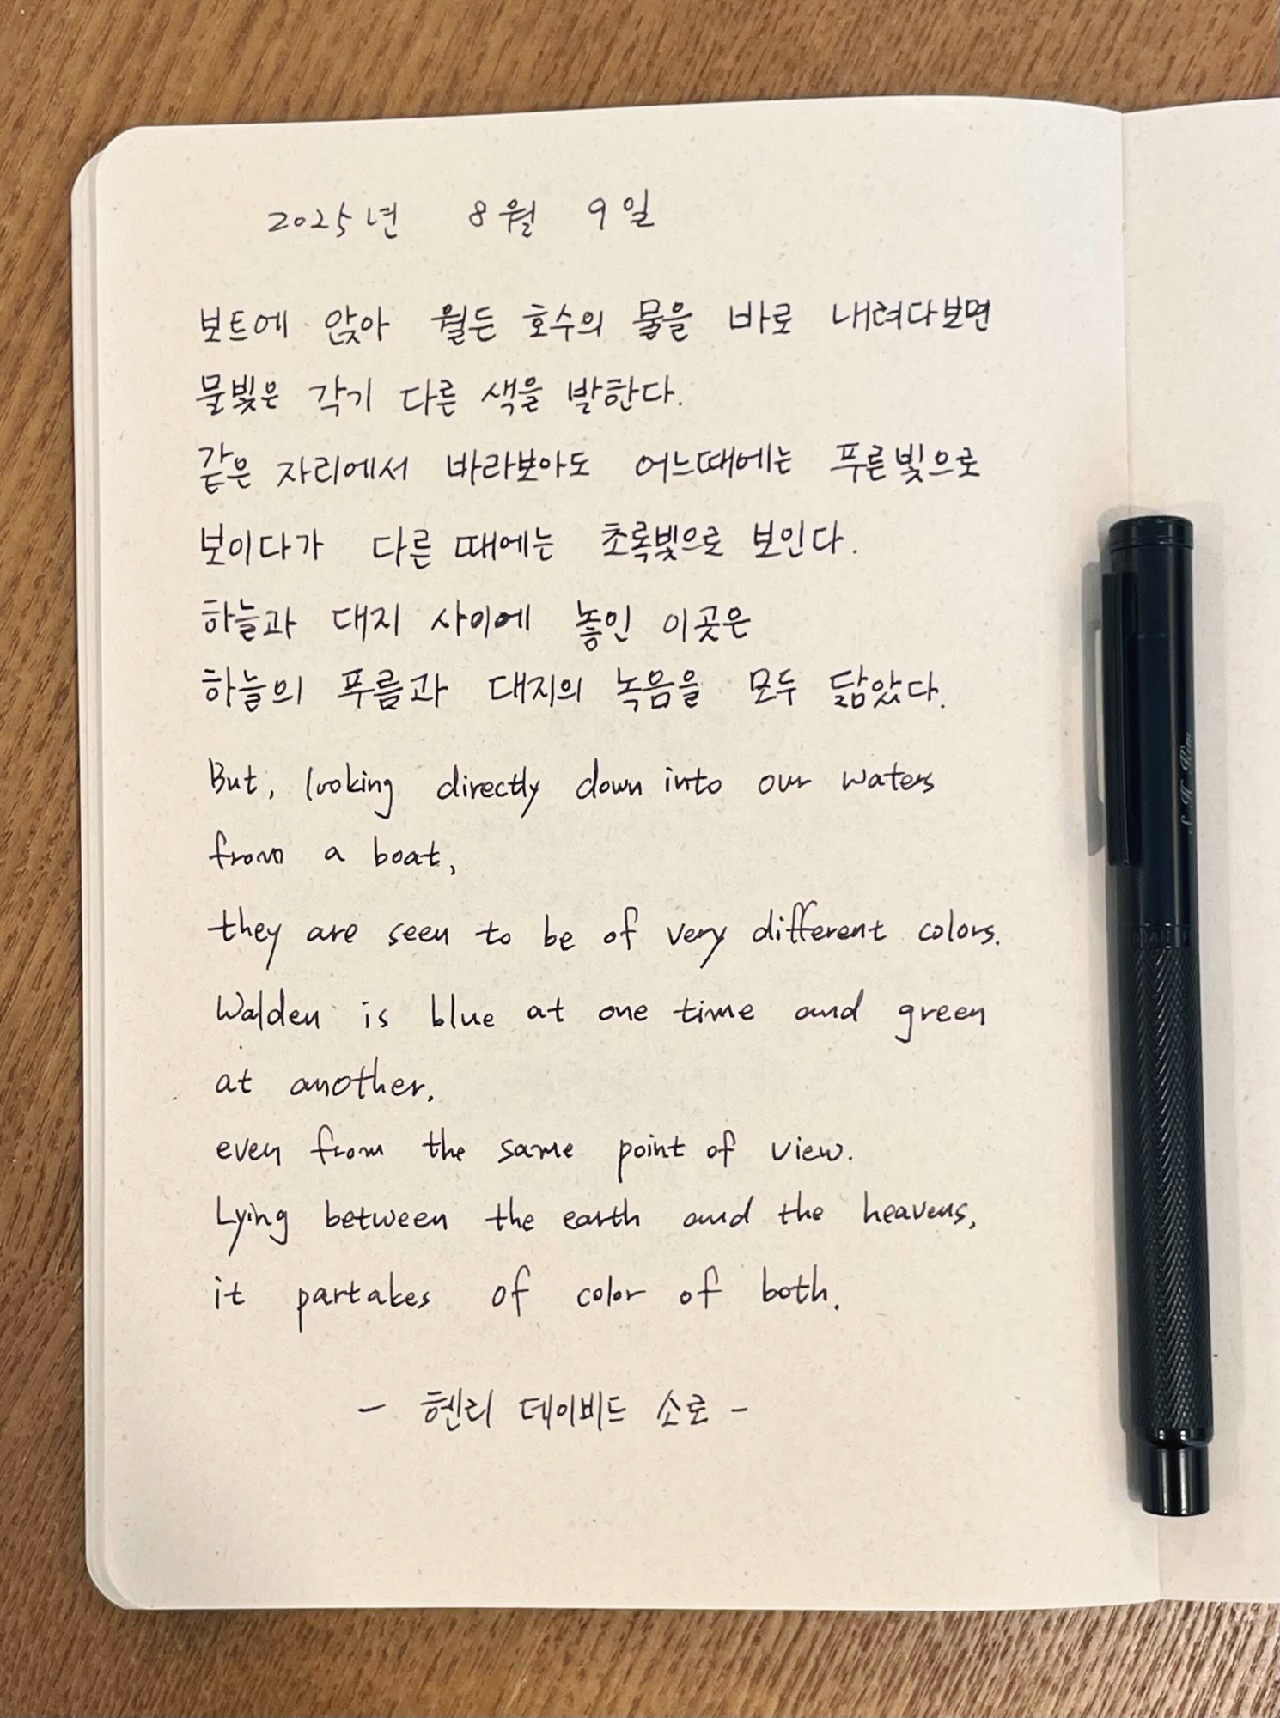 2025년 8월 9일
보트에 앉아 월든 호수의 물을 바로 내려다보면
물빛은 각기 다른 색을 발한다.
같은 자리에서 바라보아도 어느때에는 푸른빛으로
보이다가 다른 때에는 초록빛으로 보인다.
하늘과 대지 사이에 놓인 이곳은
하늘의 푸름과 대지의 녹음을 모두 닮았다.
But, looking directly down into our waters
from a boat,
they are seen to be of very different colors.
Walden is blue at one time and green
at another,
even from the same point of view.
Lying between the earth and the heavens,
it partakes of color of both.
- 헨리 데이비드 소로 -